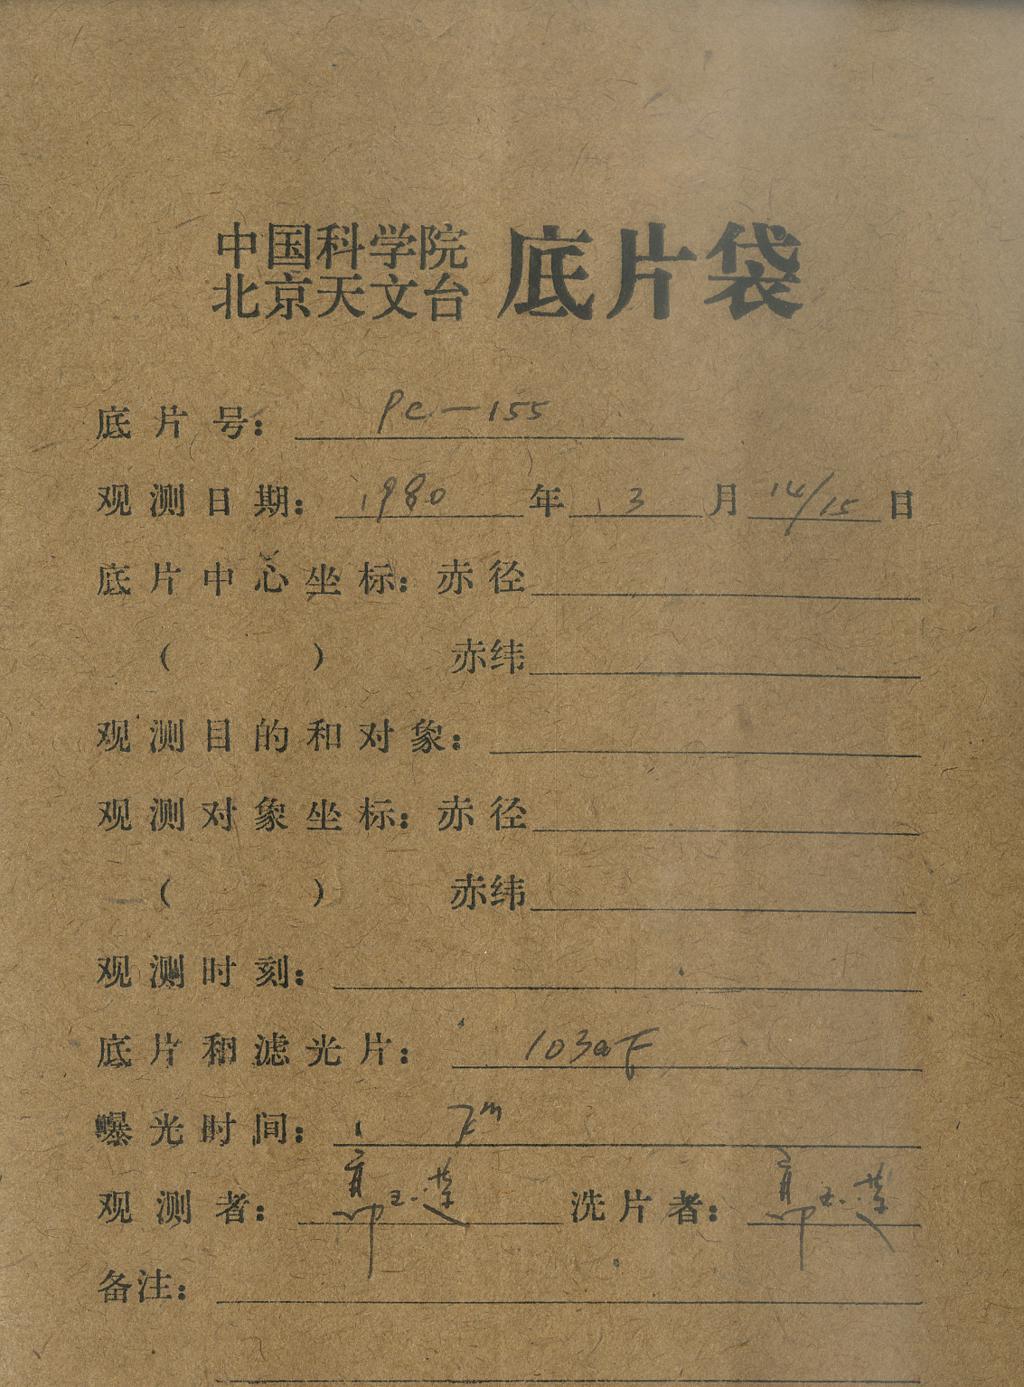 中国科学院
北京天文台 底片袋
底片号： Pc—155
观测日期： 1980 年 3 月 14/15 日
底片中心坐标：赤径
（ ） 赤纬
观测目的和对象：
观测对象坐标：赤径
（ ） 赤纬
观测时刻：
底片和滤光片： 103aF
曝光时间： 7m
观测者： 洗片者：
备注：